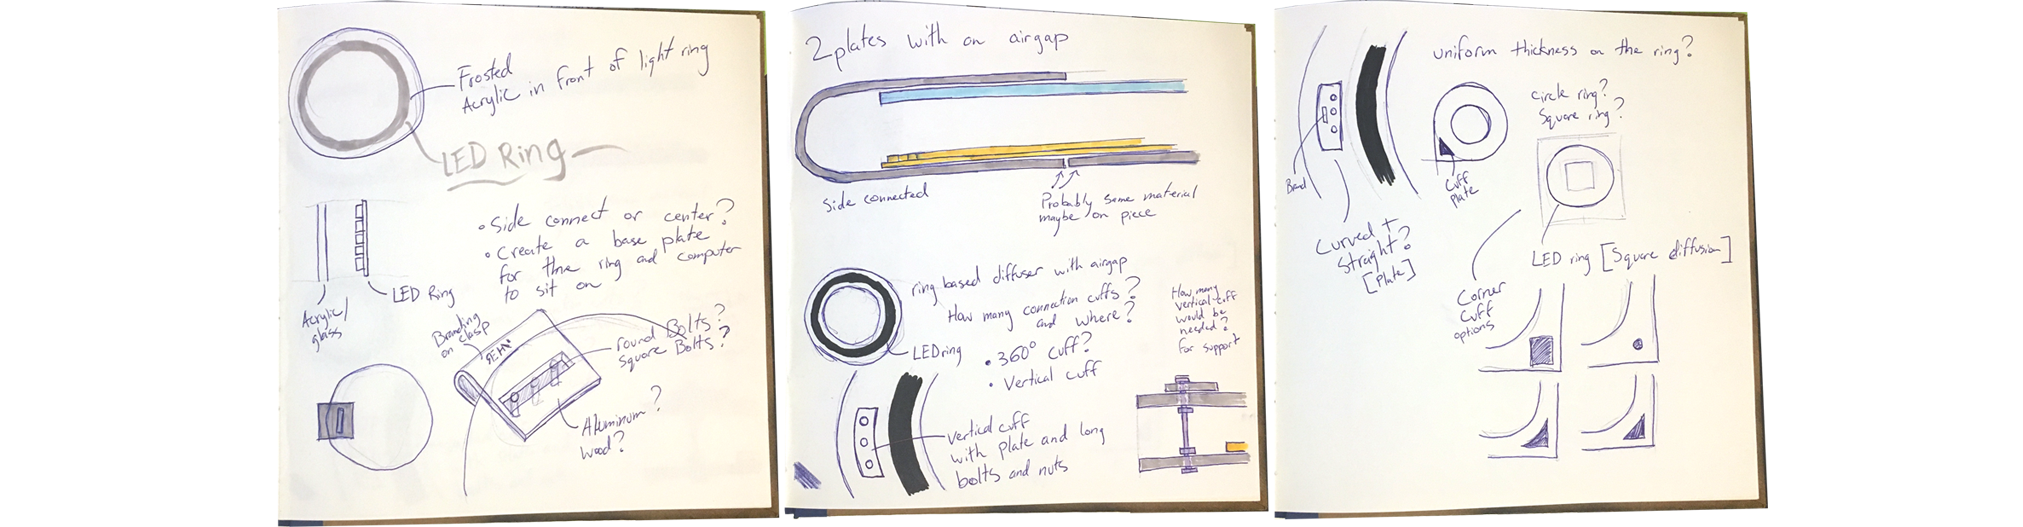 Frosted
Acrylic in front of light ring
LED Ring
• Side connect or center?
• Create a base plate
for thne ring and computer
to sit on
LED Ring
Acrylic/
glass
Branding
on clasp
round Bolts?
square Bolts?
Aluminum?
wood?
2 plates with an airgap
Side connected
Probably same material
maybe on piece
ring based diffuser with airgap
How many connection cuffs?
and where?
LED ring
• 360° cuff?
• Vertical cuff
How many
vertical cuff
would be
needed?
for support
vertical cuff
with plate and long
bolts and nuts
uniform thickness on the ring?
circle ring?
Square ring?
Brand
Cuff
Plate
Curved +
Straight?
[Plate]
LED ring [Square diffusion]
Corner
Cuff
options